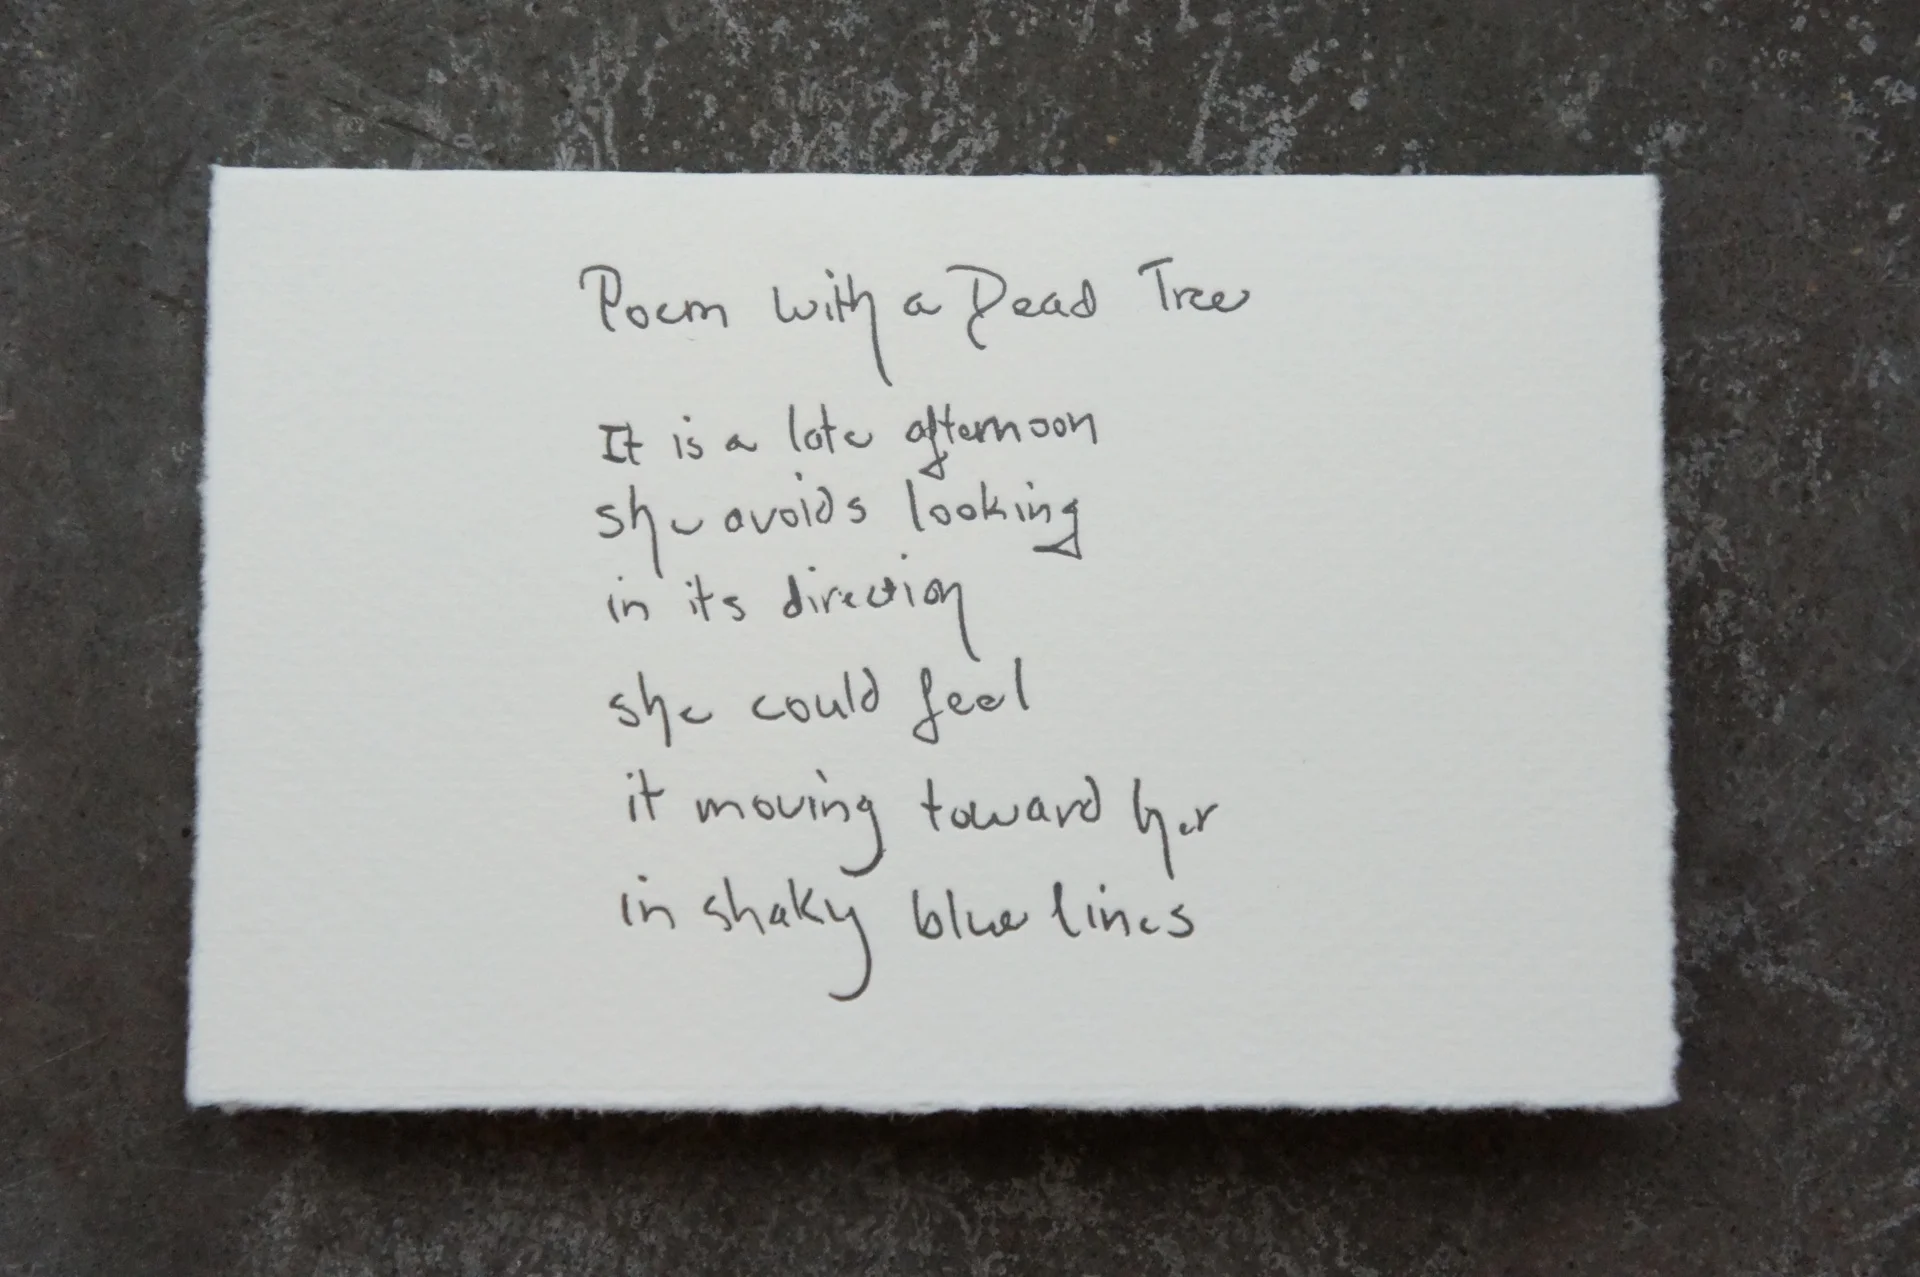 Poem with a Dead Tree
It is a late afternoon
she avoids looking
in its direction
she could feel
it moving toward her
in shaky blue lines